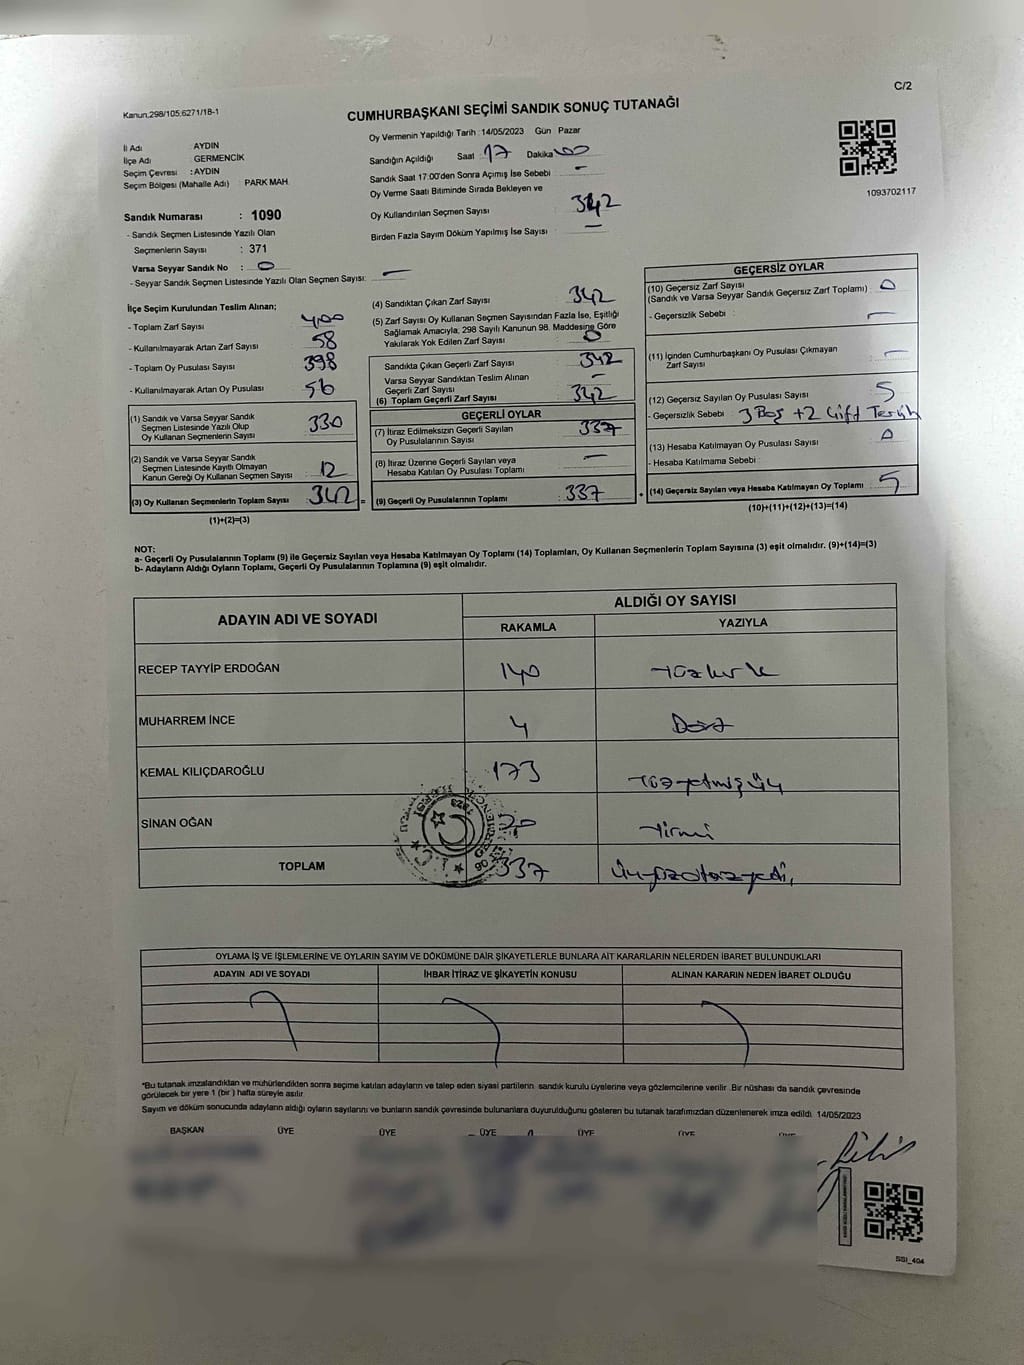 C/2
Kanun.298/105;6271/18-1
CUMHURBAŞKANI SEÇİMİ SANDIK SONUÇ TUTANAĞI
Oy Vermenin Yapıldığı Tarih : 14/05/2023 Gün Pazar
İl Adı : AYDIN
İlçe Adı : GERMENCİK
Seçim Çevresi : AYDIN
Seçim Bölgesi (Mahalle Adı) : PARK MAH.
Sandığın Açıldığı Saat 17 Dakika 00
Sandık Saat 17:00'den Sonra Açımış İse Sebebi : -
Oy Verme Saati Bitiminde Sırada Bekleyen ve
Oy Kullandırılan Seçmen Sayısı : 342
Birden Fazla Sayım Döküm Yapılmış İse Sayısı : -
1093702117
Sandık Numarası : 1090
- Sandık Seçmen Listesinde Yazılı Olan
Seçmenlerin Sayısı : 371
Varsa Seyyar Sandık No : 0
- Seyyar Sandık Seçmen Listesinde Yazılı Olan Seçmen Sayısı: -
İlçe Seçim Kurulundan Teslim Alınan;
- Toplam Zarf Sayısı : 400
- Kullanılmayarak Artan Zarf Sayısı : 58
- Toplam Oy Pusulası Sayısı : 398
- Kullanılmayarak Artan Oy Pusulası : 56
(1) Sandık ve Varsa Seyyar Sandık
Seçmen Listesinde Yazılı Olup
Oy Kullanan Seçmenlerin Sayısı : 330
(2) Sandık ve Varsa Seyyar Sandık
Seçmen Listesinde Kayıtlı Olmayan
Kanun Gereği Oy Kullanan Seçmen Sayısı : 12
(3) Oy Kullanan Seçmenlerin Toplam Sayısı : 342 =
(1)+(2)=(3)
(4) Sandıktan Çıkan Zarf Sayısı : 342
(5) Zarf Sayısı Oy Kullanan Seçmen Sayısından Fazla İse, Eşitliği
Sağlamak Amacıyla; 298 Sayılı Kanunun 98. Maddesine Göre
Yakılarak Yok Edilen Zarf Sayısı : 0
Sandıkta Çıkan Geçerli Zarf Sayısı : 342
Varsa Seyyar Sandıktan Teslim Alınan
Geçerli Zarf Sayısı : -
(6) Toplam Geçerli Zarf Sayısı : 342
GEÇERLİ OYLAR
(7) İtiraz Edilmeksizin Geçerli Sayılan
Oy Pusulalarının Sayısı : 337
(8) İtiraz Üzerine Geçerli Sayılan veya
Hesaba Katılan Oy Pusulası Toplamı : -
(9) Geçerli Oy Pusulalarının Toplamı : 337 +
GEÇERSİZ OYLAR
(10) Geçersiz Zarf Sayısı
(Sandık ve Varsa Seyyar Sandık Geçersiz Zarf Toplamı) : 0
- Geçersizlik Sebebi : -
(11) İçinden Cumhurbaşkanı Oy Pusulası Çıkmayan
Zarf Sayısı : -
(12) Geçersiz Sayılan Oy Pusulası Sayısı : 5
- Geçersizlik Sebebi : 3 Boş +2 Çift Tercih
(13) Hesaba Katılmayan Oy Pusulası Sayısı : 0
- Hesaba Katılmama Sebebi :
(14) Geçersiz Sayılan veya Hesaba Katılmayan Oy Toplamı : 5
(10)+(11)+(12)+(13)=(14)
NOT:
a- Geçerli Oy Pusulalarının Toplamı (9) ile Geçersiz Sayılan veya Hesaba Katılmayan Oy Toplamı (14) Toplamları, Oy Kullanan Seçmenlerin Toplam Sayısına (3) eşit olmalıdır. (9)+(14)=(3)
b- Adayların Aldığı Oyların Toplamı, Geçerli Oy Pusulalarının Toplamına (9) eşit olmalıdır.
ADAYIN ADI VE SOYADI ALDIĞI OY SAYISI
RAKAMLA YAZIYLA
RECEP TAYYİP ERDOĞAN 140 Yüzkırk
MUHARREM İNCE 4 Dört
KEMAL KILIÇDAROĞLU 173 Yüzyetmişüç
SİNAN OĞAN 20 Yirmi
TOPLAM 337 Üçyüzotuzyedi
OYLAMA İŞ VE İŞLEMLERİNE VE OYLARIN SAYIM VE DÖKÜMÜNE DAİR ŞİKAYETLERLE BUNLARA AİT KARARLARIN NELERDEN İBARET BULUNDUKLARI
ADAYIN ADI VE SOYADI İHBAR İTİRAZ VE ŞİKAYETİN KONUSU ALINAN KARARIN NEDEN İBARET OLDUĞU
*Bu tutanak imzalandıktan ve mühürlendikten sonra seçime katılan adayların ve talep eden siyasi partilerin sandık kurulu üyelerine veya gözlemcilerine verilir. Bir nüshası da sandık çevresinde
görülecek bir yere 1 (bir) hafta süreyle asılır.
Sayım ve döküm sonucunda adayların aldığı oyların sayılarını ve bunların sandık çevresinde bulunanlara duyurulduğunu gösteren bu tutanak tarafımızdan düzenlenerek imza edildi. 14/05/2023
BAŞKAN ÜYE ÜYE ÜYE ÜYE ÜYE
SSI_404